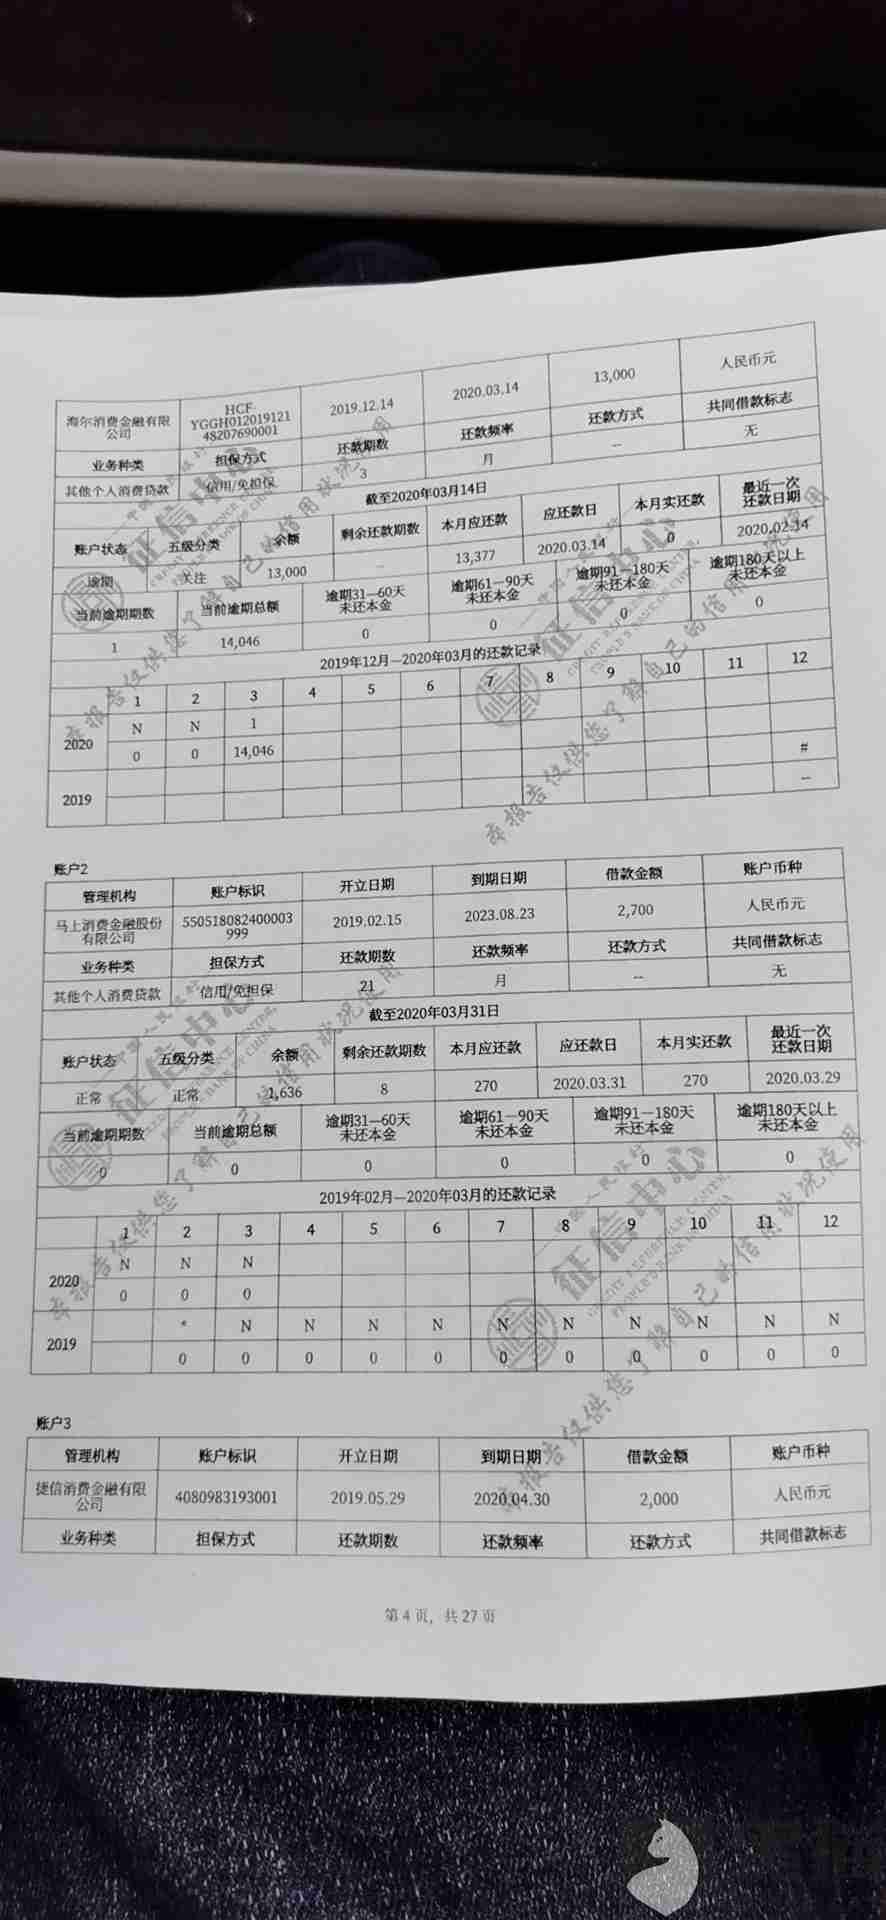 海尔消费金融有限公司 HCF-YGGH01201912148207690001 2019.12.14 2020.03.14 13,000 人民币元
业务种类 担保方式 还款期数 还款频率 还款方式 共同借款标志
其他个人消费贷款 信用/免担保 3 月 -- 无
截至2020年03月14日
账户状态 五级分类 余额 剩余还款期数 本月应还款 应还款日 本月实还款 最近一次还款日期
逾期 关注 13,000 13,377 2020.03.14 0 2020.02.14
当前逾期期数 当前逾期总额 逾期31—60天未还本金 逾期61—90天未还本金 逾期91—180天未还本金 逾期180天以上未还本金
1 14,046 0 0 0 0
2019年12月—2020年03月的还款记录
1 2 3 4 5 6 7 8 9 10 11 12
2020 N N 1
0 0 14,046
2019 #
--
账户2
管理机构 账户标识 开立日期 到期日期 借款金额 账户币种
马上消费金融股份有限公司 550518082400003999 2019.02.15 2023.08.23 2,700 人民币元
业务种类 担保方式 还款期数 还款频率 还款方式 共同借款标志
其他个人消费贷款 信用/免担保 21 月 -- 无
截至2020年03月31日
账户状态 五级分类 余额 剩余还款期数 本月应还款 应还款日 本月实还款 最近一次还款日期
正常 正常 1,636 8 270 2020.03.31 270 2020.03.29
当前逾期期数 当前逾期总额 逾期31—60天未还本金 逾期61—90天未还本金 逾期91—180天未还本金 逾期180天以上未还本金
0 0 0 0 0 0
2019年02月—2020年03月的还款记录
1 2 3 4 5 6 7 8 9 10 11 12
2020 N N N
0 0 0
2019 * N N N N N N N N N N
0 0 0 0 0 0 0 0 0 0 0
账户3
管理机构 账户标识 开立日期 到期日期 借款金额 账户币种
捷信消费金融有限公司 4080983193001 2019.05.29 2020.04.30 2,000 人民币元
业务种类 担保方式 还款期数 还款频率 还款方式 共同借款标志
第 4 页，共 27 页
征信中心
CREDIT REFERENCE CENTER,
PEOPLE'S BANK OF CHINA
本报告仅供您了解自己的信用状况使用